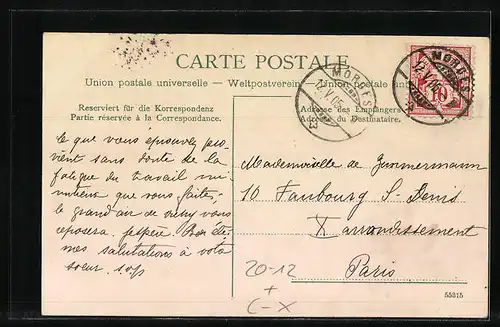 CARTE POSTALE
Union postale universelle — Weltpostverein — Union postale univ
Reserviert für die Korrespondenz
Partie réservée à la Correspondance.
Adresse des Empfängers
Adresse du Destinataire.
MORGES
V.06
MORGES
V.06
10
ce que vous éprouvez pro
vient sans doute de la
fatigue du travail mi
nutieux que vous faites,
le grand air de vous
reposera. j'espère
mes salutations à votre
soeur.
Mademoiselle de
10 Faubourg St Denis
X arrondissement
Paris
20-12
+
C-X
55315